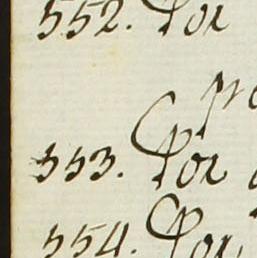 552. Por
553. Por
554. Por